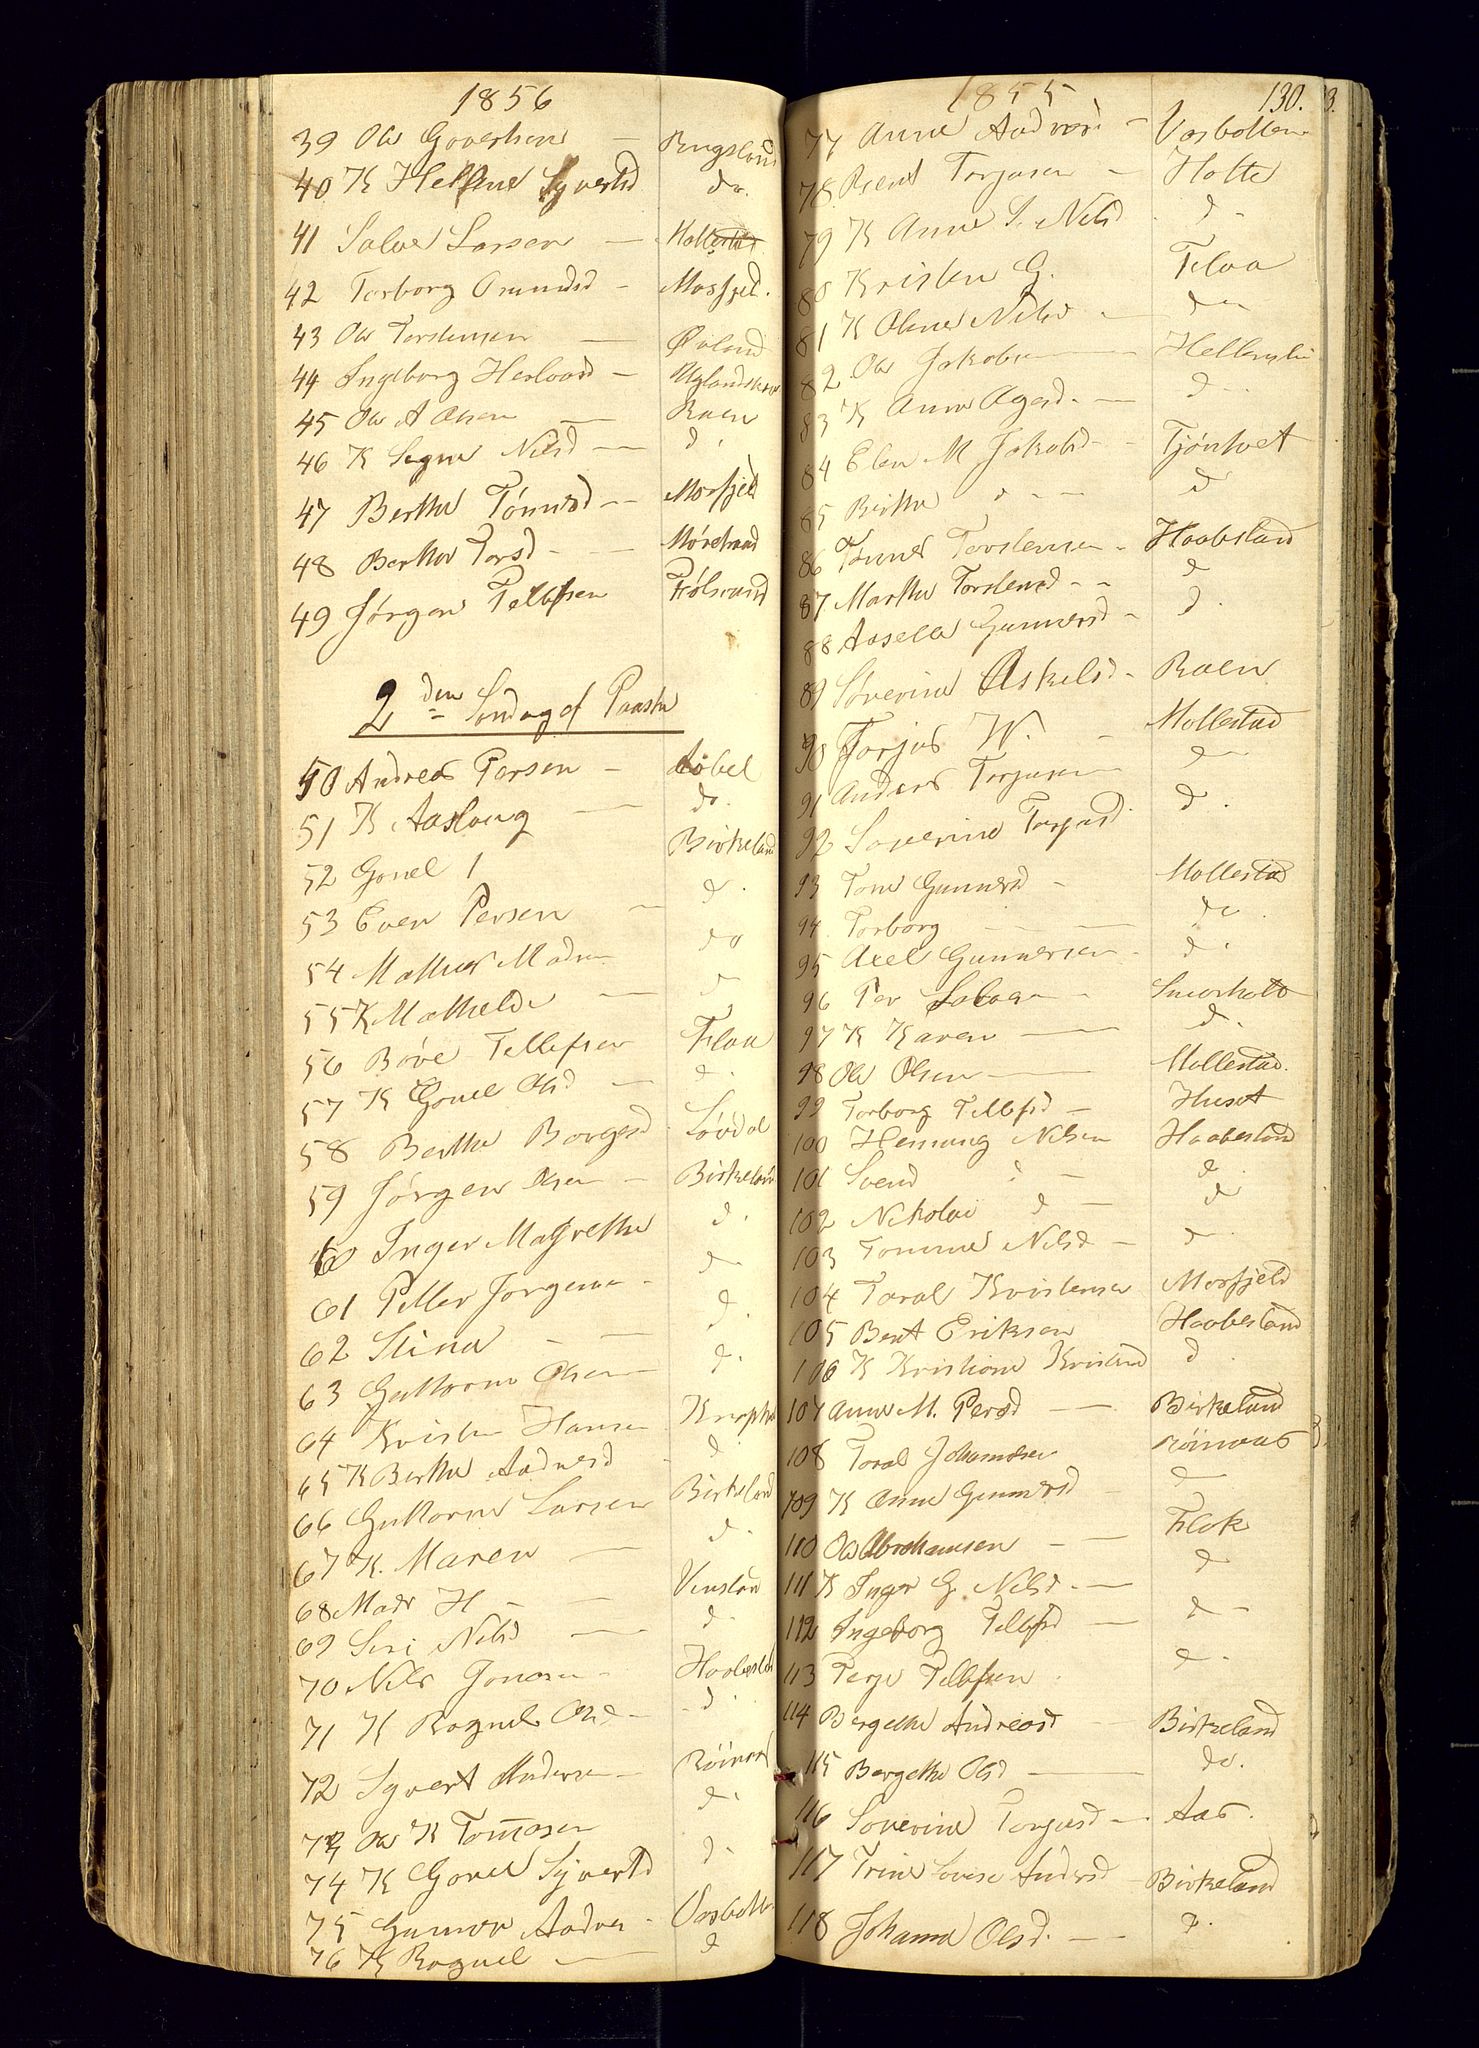 1856
39 Ole Govertsen — Rugsland
40 K Hellene Syvertsd do.
41 Salve Larsen — Mollestad
42 Torborg Omundsd - Mosfjeld.
43 Ole Torstensen — Øvland
44 Ingeborg Herlovsd — Uglandskaar
45 Ole A Olsen — Raen
46 K Signe Nilsd — d.
47 Berthe Tønnesd — Mosfjeld
48 Berthe Torsd - — Mørstrand
49 Jørgen Tellefsen Følsvand
2den Søndag ef Paaske
50 Andreas Persen — Løbel
51 K Aaslaug — do.
52 Gonel 1 Birkeland
53 Even Persen — d.
54 Mathias Madsen do
55 K Mathilde — d
56 Børe Tellefsen Flaa
57 K Gonel Olsd — d.
58 Berthe Borgesd Løvdal
59 Jørgen Olsen — Birkeland
60 Inger Magrethe d.
61 Peller Jorgensen - d
62 Stine — d.
63 Guttorm Olsen d.
64 Kristen Hansen Knaphe
65 K Berthe Aadnesd d
66 Guttorm Larsen Birkeland
67 K. Maren — d.
68 Mads H — Vinsland
69 Siri Nilsd — d.
70 Nils Jonasen - Haabesland
71 K Ragnel Olsd - d.
72 Syvert Andersen — Røinaas
73 Ole K Tomasen d.
74 K Gonel Syvertsd d.
75 Gunner Aadnes - Vasbotten
76 K Ragnel — d
1855 130. 3.
77 Anne Aadnesd — Vasbotten
78 Bent Torjusen - Holte
79 K Anne S. Nilsd d -
80 Kristen G. Flaa
81 K Oline Nilsd — do
82 Ole Jakobsen — Hellerslie
83 K Anne Agesd. — d -
84 Elen M Jakobsd - - Tjønhvet
85 Birthe d - — d
86 Tønnes Torstensen - Haabesland
87 Marthe Torstensd - - d
88 Aaselle Gunnersd - d.
89 Søverine Askelsd - Raen
90 Torjus W. - Mollestad
91 Anders Torjusen d
92 Søverine Torjusd. d.
93 Tone Gunnersd - Mollestad
94 Torborg — — do.
95 Axel Gunnersen - d.
96 Per Salvesen - Smorholt
97 K Karen — d.
98 Ole Olsen — Mollestad.
99 Torborg Tellefsd — Huset
100 Henning Nilsen Haabesland
101 Svend d — d
102 Nikolai d — d
103 Tomine Nilsd — d.
104 Taral Kristensen Mosfjeld
105 Bent Eriksen Haabesland
106 K Kristiane Kristensd d.
107 Anne M. Persd — Birkeland
108 Toral Johannesen Røinaas
109 K Anne Gunnersd - d
110 Ole Abrahamsen — Flak
111 K Inger G Nilsd. — d
112 Ingeborg Tellefsd — d —
113 Terje Tellefsen . d -
114 Bergethe Andreasd — Birkeland
115 Bergethe Olsd — do.
116 Soverine Torjusd — Aas.
117 Trine Lovise Andersd Birkeland
118 Johanne Olsd. — d.